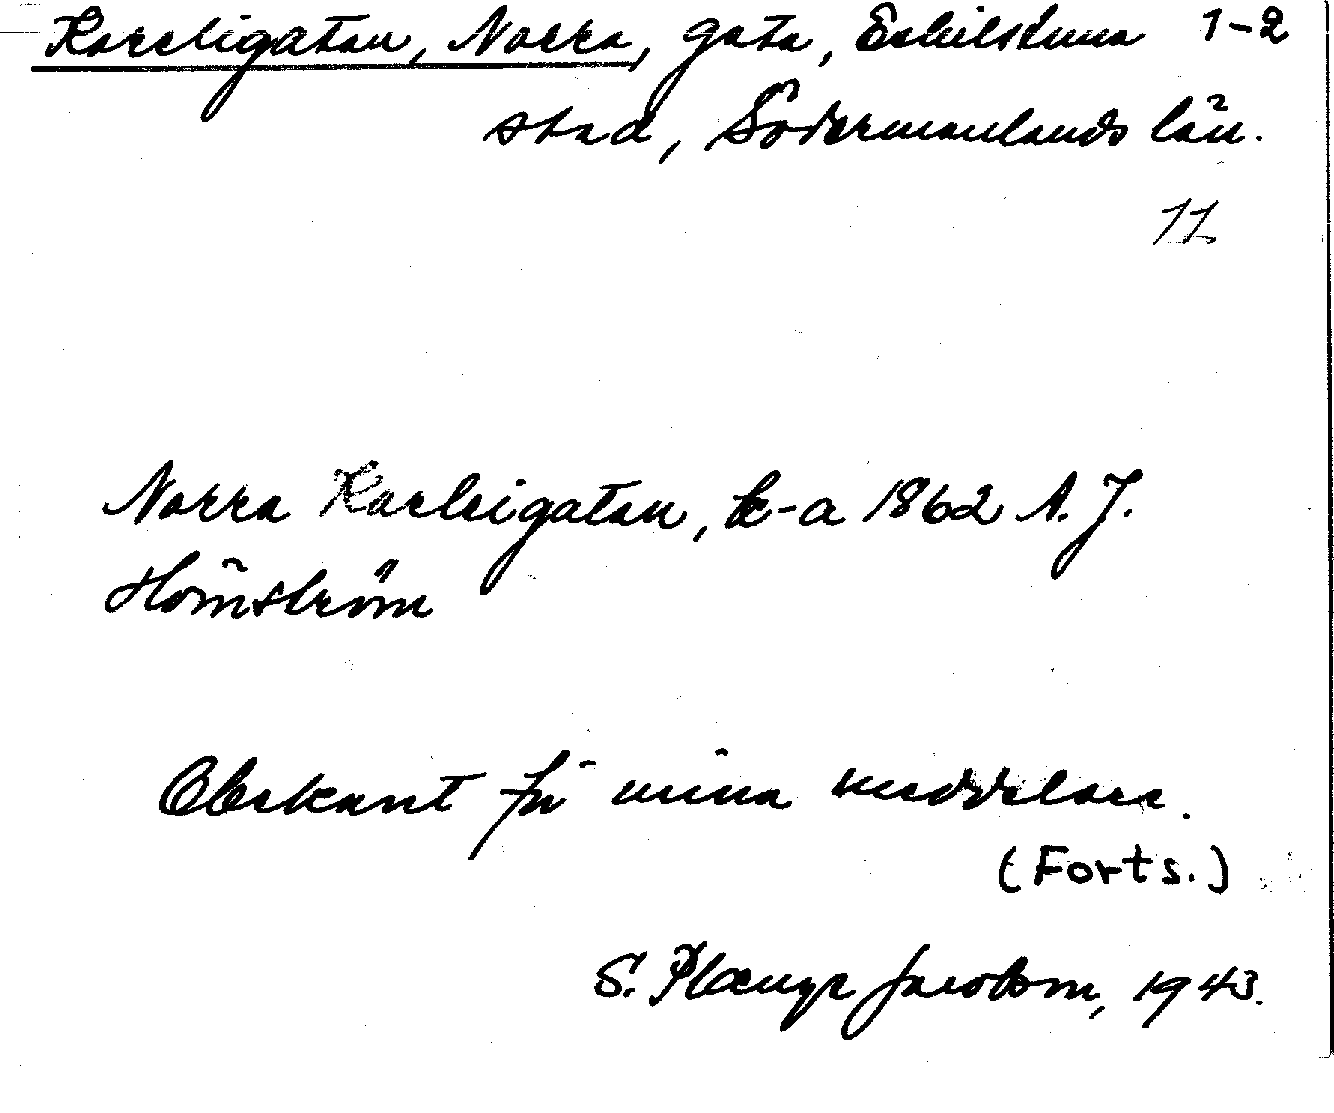 Karleigatan, Norra, gata, Eskilstuna 1-2
stad, Södermanlands län.
11
Norra Karleigatan, k-a 1862 A. J.
Holmström
Obekant för mina meddelare.
(Forts.)
S. Plænge Jacobson, 1943.